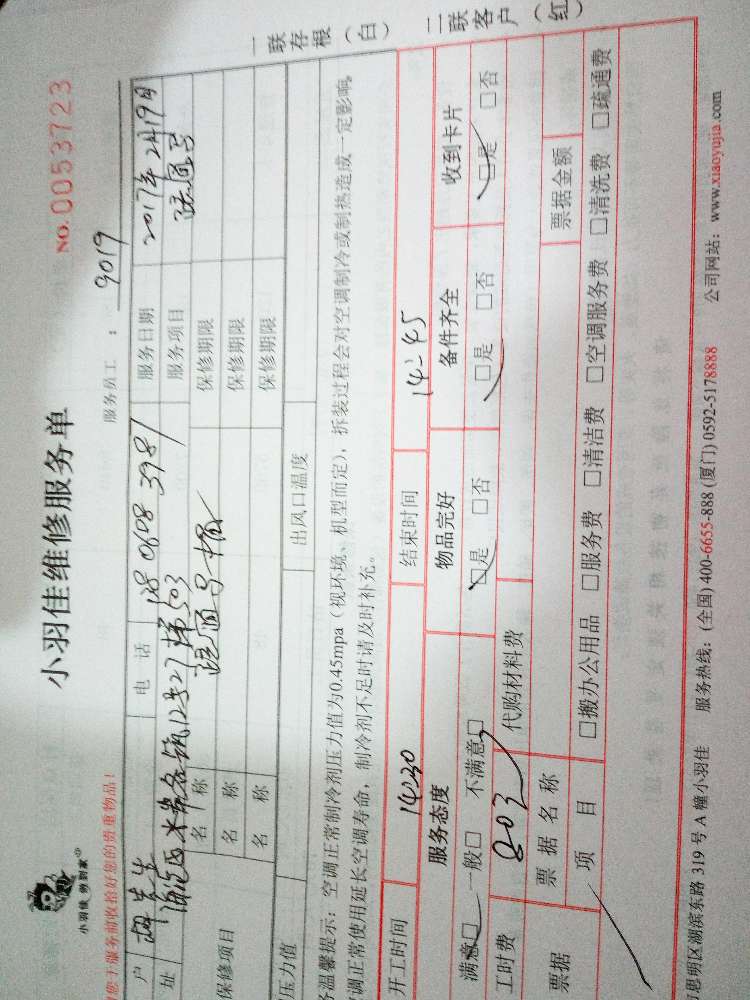 小羽佳维修服务单
NO.0053723
小羽佳 劳到家
您于服务前收拾好您的贵重物品！
服务员工： 9019
户 电话 服务日期 2017年2月19日
址 服务项目
保修项目 名称 保修期限
名称 保修期限
名称 保修期限
压力值 出风口温度
务温馨提示：空调正常制冷剂压力值为0.45mpa（视环境、机型而定），拆装过程会对空调制冷或制热造成一定影响。
调正常使用延长空调寿命，制冷剂不足时请及时补充。
开工时间 14:30 结束时间 14:45
服务态度 物品完好 备件齐全 收到卡片
满意□ 一般□ 不满意□ □是 □否 □是 □否 □是 □否
工时费 代购材料费
票据 票据名称 票据金额
项目 □搬办公用品 □服务费 □清洁费 □空调服务费 □清洗费 □疏通费
思明区湖滨东路 319 号 A 幢小羽佳 服务热线：(全国) 400-6655-888 (厦门) 0592-5178888 公司网站：www.xiaoyujia.com
一联存根（白）
二联客户（红）